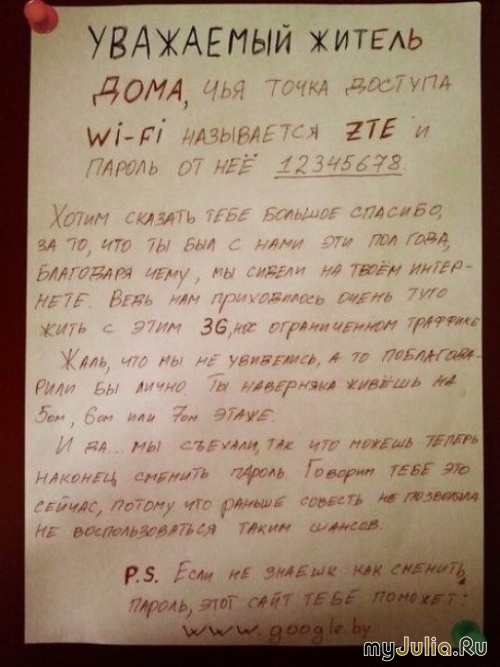 УВАЖАЕМЫЙ ЖИТЕЛЬ
ДОМА, ЧЬЯ ТОЧКА ДОСТУПА
Wi-Fi НАЗЫВАЕТСЯ ZTE И
ПАРОЛЬ ОТ НЕЁ 12345678.
ХОТИМ СКАЗАТЬ ТЕБЕ БОЛЬШОЕ СПАСИБО,
ЗА ТО, ЧТО ТЫ БЫЛ С НАМИ ЭТИ ПОЛ ГОДА,
БЛАГОДАРЯ ЧЕМУ, МЫ СИДЕЛИ НА ТВОЁМ ИНТЕР-
НЕТЕ. ВЕДЬ НАМ ПРИХОДИЛОСЬ ОЧЕНЬ ТУГО
ЖИТЬ С ЭТИМ 3G, ОГРАНИЧЕННОМ ТРАФФИКЕ
ЖАЛЬ, ЧТО МЫ НЕ УВИДЕЛИСЬ, А ТО ПОБЛАГОДА-
РИЛИ БЫ ЛИЧНО. ТЫ НАВЕРНЯКА ЖИВЁШЬ НА
5ом, 6ом ИЛИ 7ом ЭТАЖЕ.
И ДА... МЫ СЪЕХАЛИ, ТАК ЧТО МОЖЕШЬ ТЕПЕРЬ
НАКОНЕЦ СМЕНИТЬ ПАРОЛЬ. ГОВОРИМ ТЕБЕ ЭТО
СЕЙЧАС, ПОТОМУ ЧТО РАНЬШЕ СОВЕСТЬ НЕ ПОЗВОЛЯЛА
НЕ ВОСПОЛЬЗОВАТЬСЯ ТАКИМ ШАНСОМ.
P.S. ЕСЛИ НЕ ЗНАЕШЬ КАК СМЕНИТЬ
ПАРОЛЬ, ЭТОТ САЙТ ТЕБЕ ПОМОЖЕТ:
www.google.by
myJulia.Ru